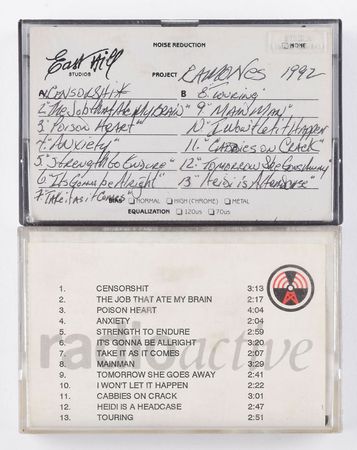 East Hill
STUDIOS
NOISE REDUCTION
NONE
PROJECT RAMONES 1992
A CENSORSHIT
B 8 "Touring"
2 "The Job that Ate My BRAIN"
9 "MAIN MAN"
3 "Poison Heart"
10 I won't let it Happen
4 "ANXIETY"
11. "CABBIES on CRACK"
5 "Strength to Endure"
12 "TOMORROW She Goes Away"
6 "It's Gonna be Alright"
13 "Heidi is A Headcase"
7 "TAKE it as it Comes"
BIAS NORMAL HIGH (CHROME) METAL
EQUALIZATION 120us 70us
radioactive
1. CENSORSHIT 3:13
2. THE JOB THAT ATE MY BRAIN 2:17
3. POISON HEART 4:04
4. ANXIETY 2:04
5. STRENGTH TO ENDURE 2:59
6. IT'S GONNA BE ALLRIGHT 3:20
7. TAKE IT AS IT COMES 2:07
8. MAINMAN 3:29
9. TOMORROW SHE GOES AWAY 2:41
10. I WON'T LET IT HAPPEN 2:22
11. CABBIES ON CRACK 3:01
12. HEIDI IS A HEADCASE 2:47
13. TOURING 2:51